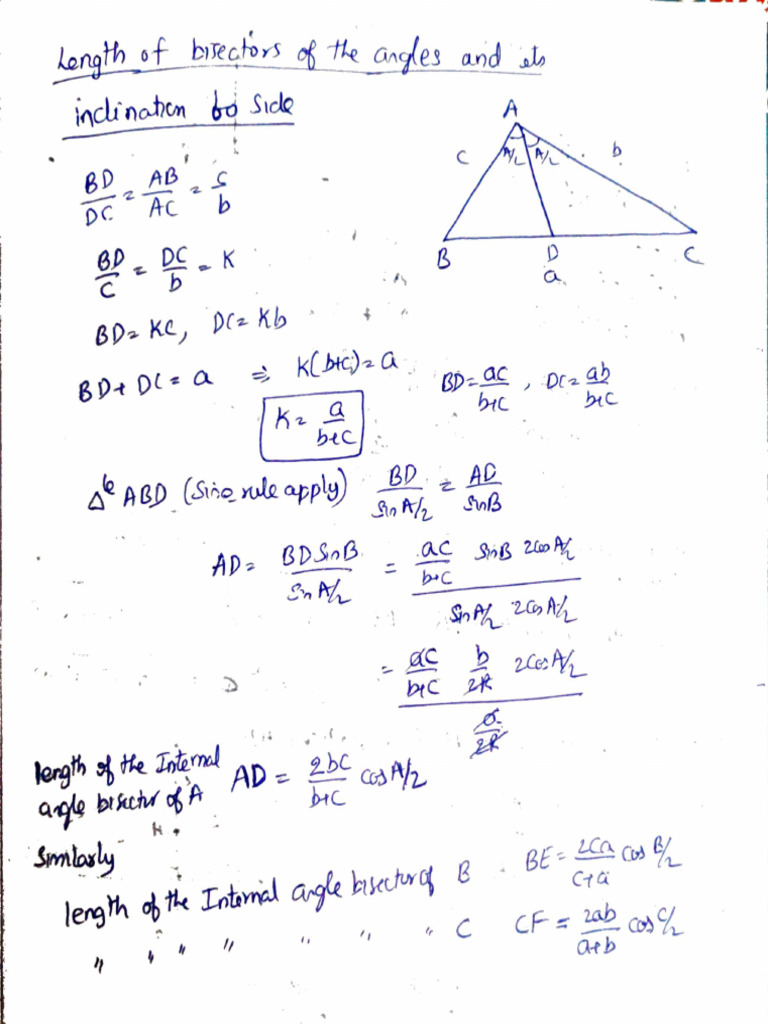 Length of bisectors of the angles and its
inclination to side
A
c A/2 A/2 b
B D C
a
BD/DC = AB/AC = c/b
BD/c = DC/b = K
BD = Kc, DC = Kb
BD + DC = a ⇒ K(b+c) = a
K = a/b+c
BD = ac/b+c , DC = ab/b+c
Δle ABD (Sine rule apply) BD/sin A/2 = AD/sin B
AD = BD Sin B/Sin A/2 = ac/b+c SinB 2cos A/2 / Sin A/2 2Cos A/2
= ac/b+c b/2R 2Cos A/2 / a/2R
length of the Internal
angle bisector of A AD = 2bc/b+c cos A/2
Similarly
length of the Internal angle bisector of B BE = 2ca/c+a cos B/2
" " " " " " " C CF = 2ab/a+b cos C/2